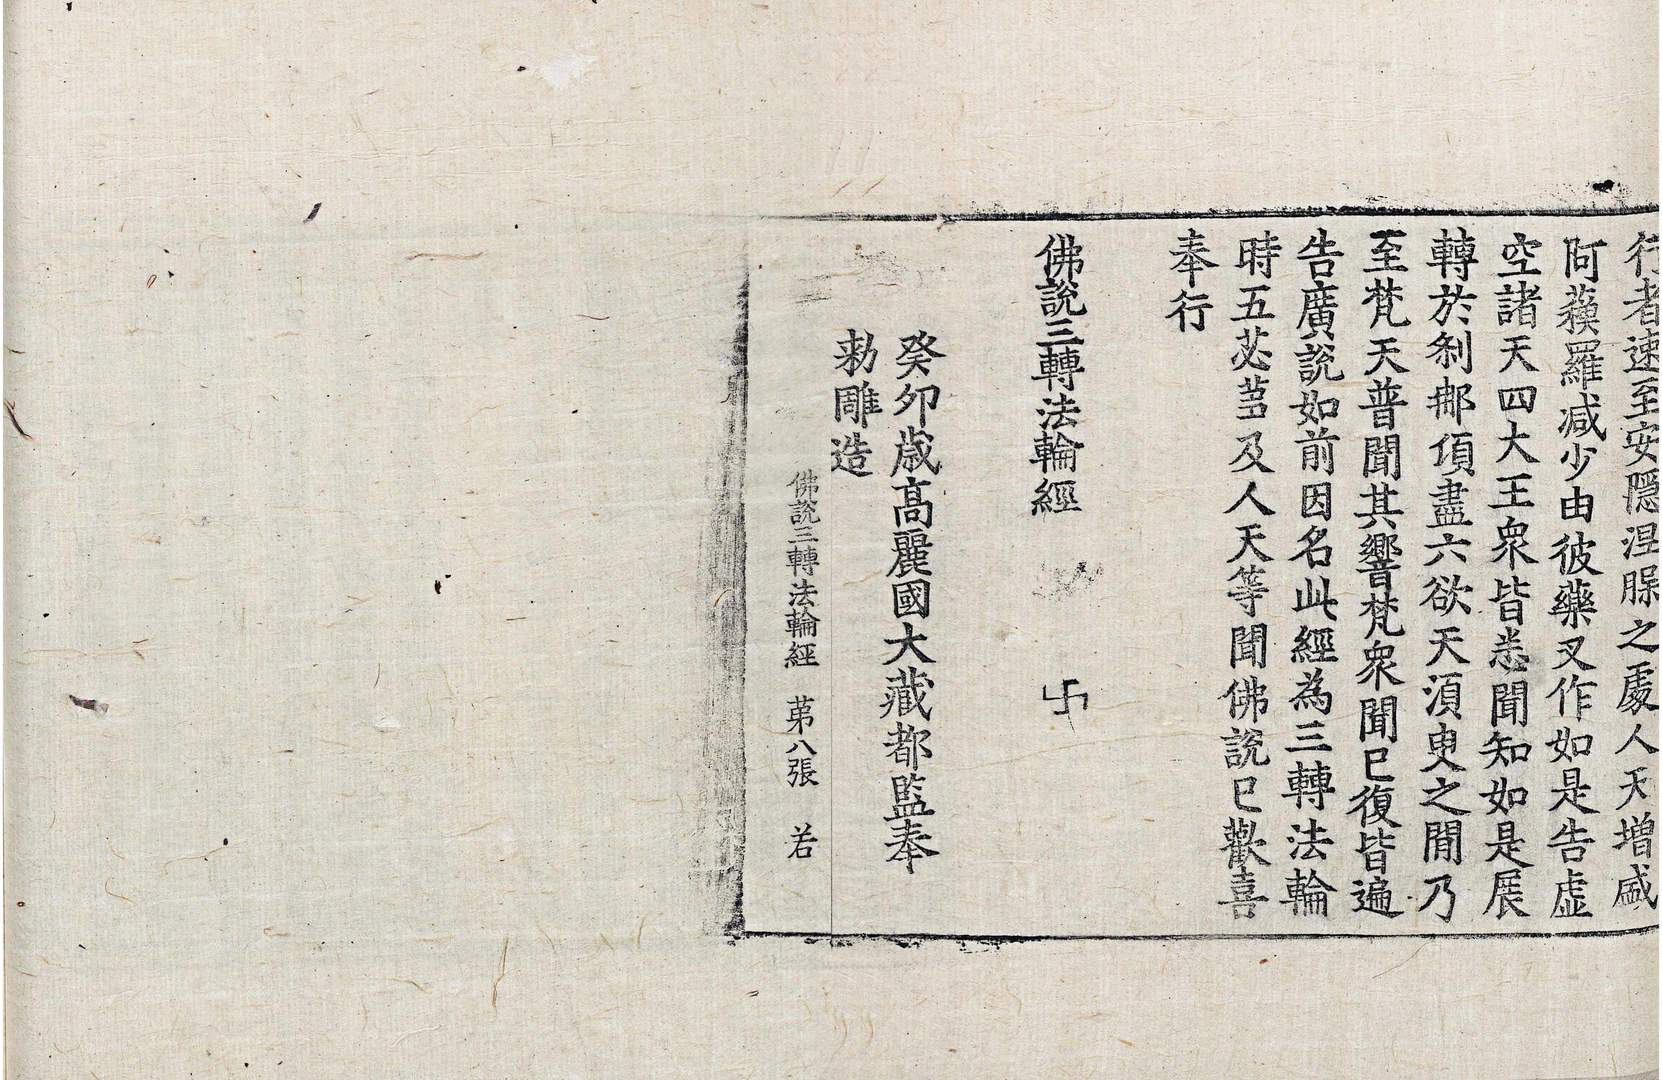 行者速至安隱涅槃之處人天增盛
阿蘓羅減少由彼藥叉作如是告虛
空諸天四大王衆皆悉聞知如是展
轉於刹那頃盡六欲天湏臾之閒乃
至梵天普聞其響梵衆聞已復皆遍
告廣說如前因名此經為三轉法輪
時五苾芻及人天等聞佛說已歡喜
奉行
佛說三轉法輪經 卐
癸卯歳髙麗國大藏都監奉
勑雕造
佛說三轉法輪經 苐八張 若